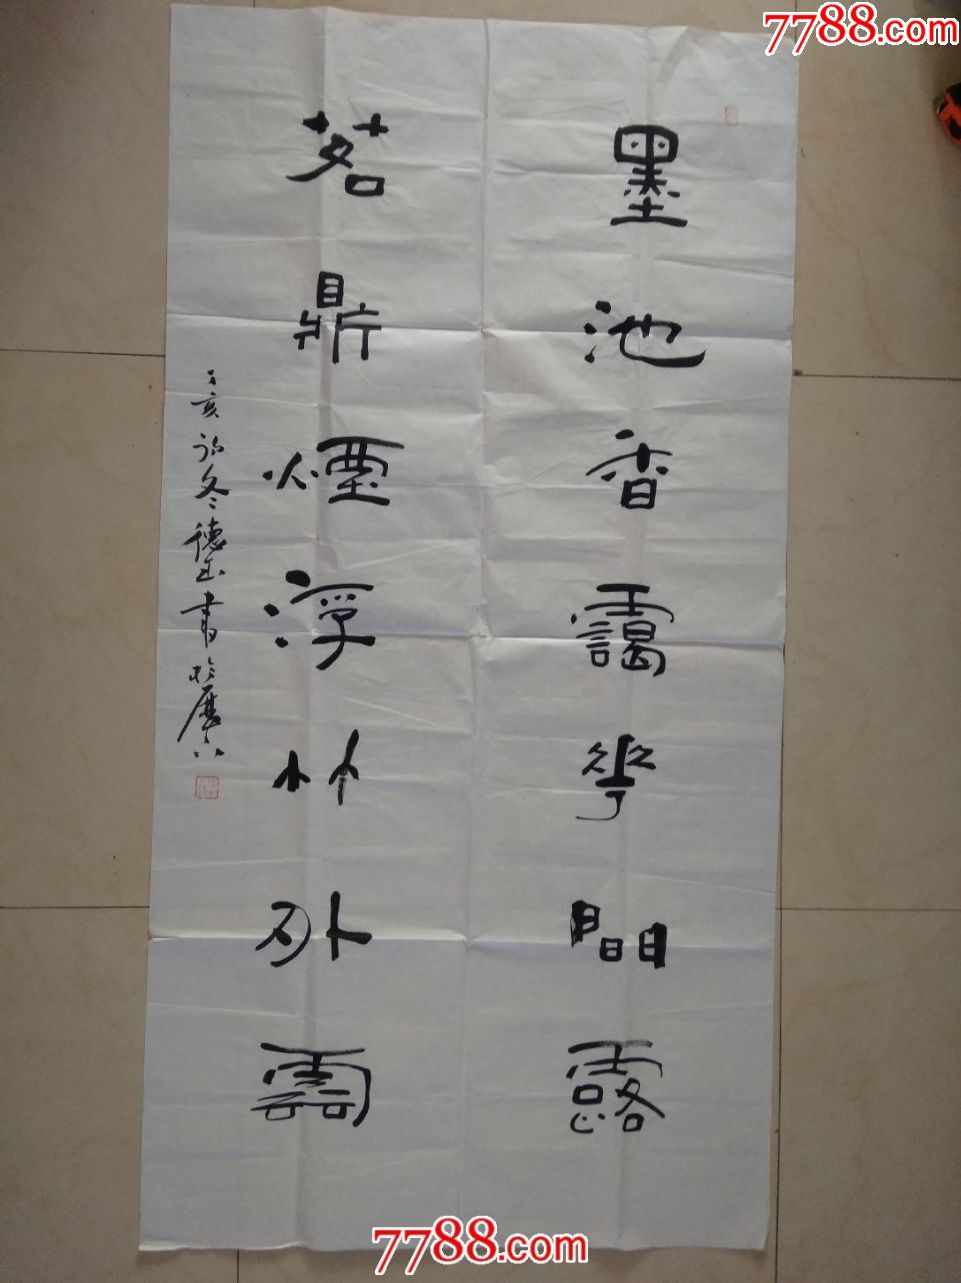 7788.com
墨池香靄花間露
茗鼎煙浮竹外雲
丁亥初冬德玉書於
7788.com